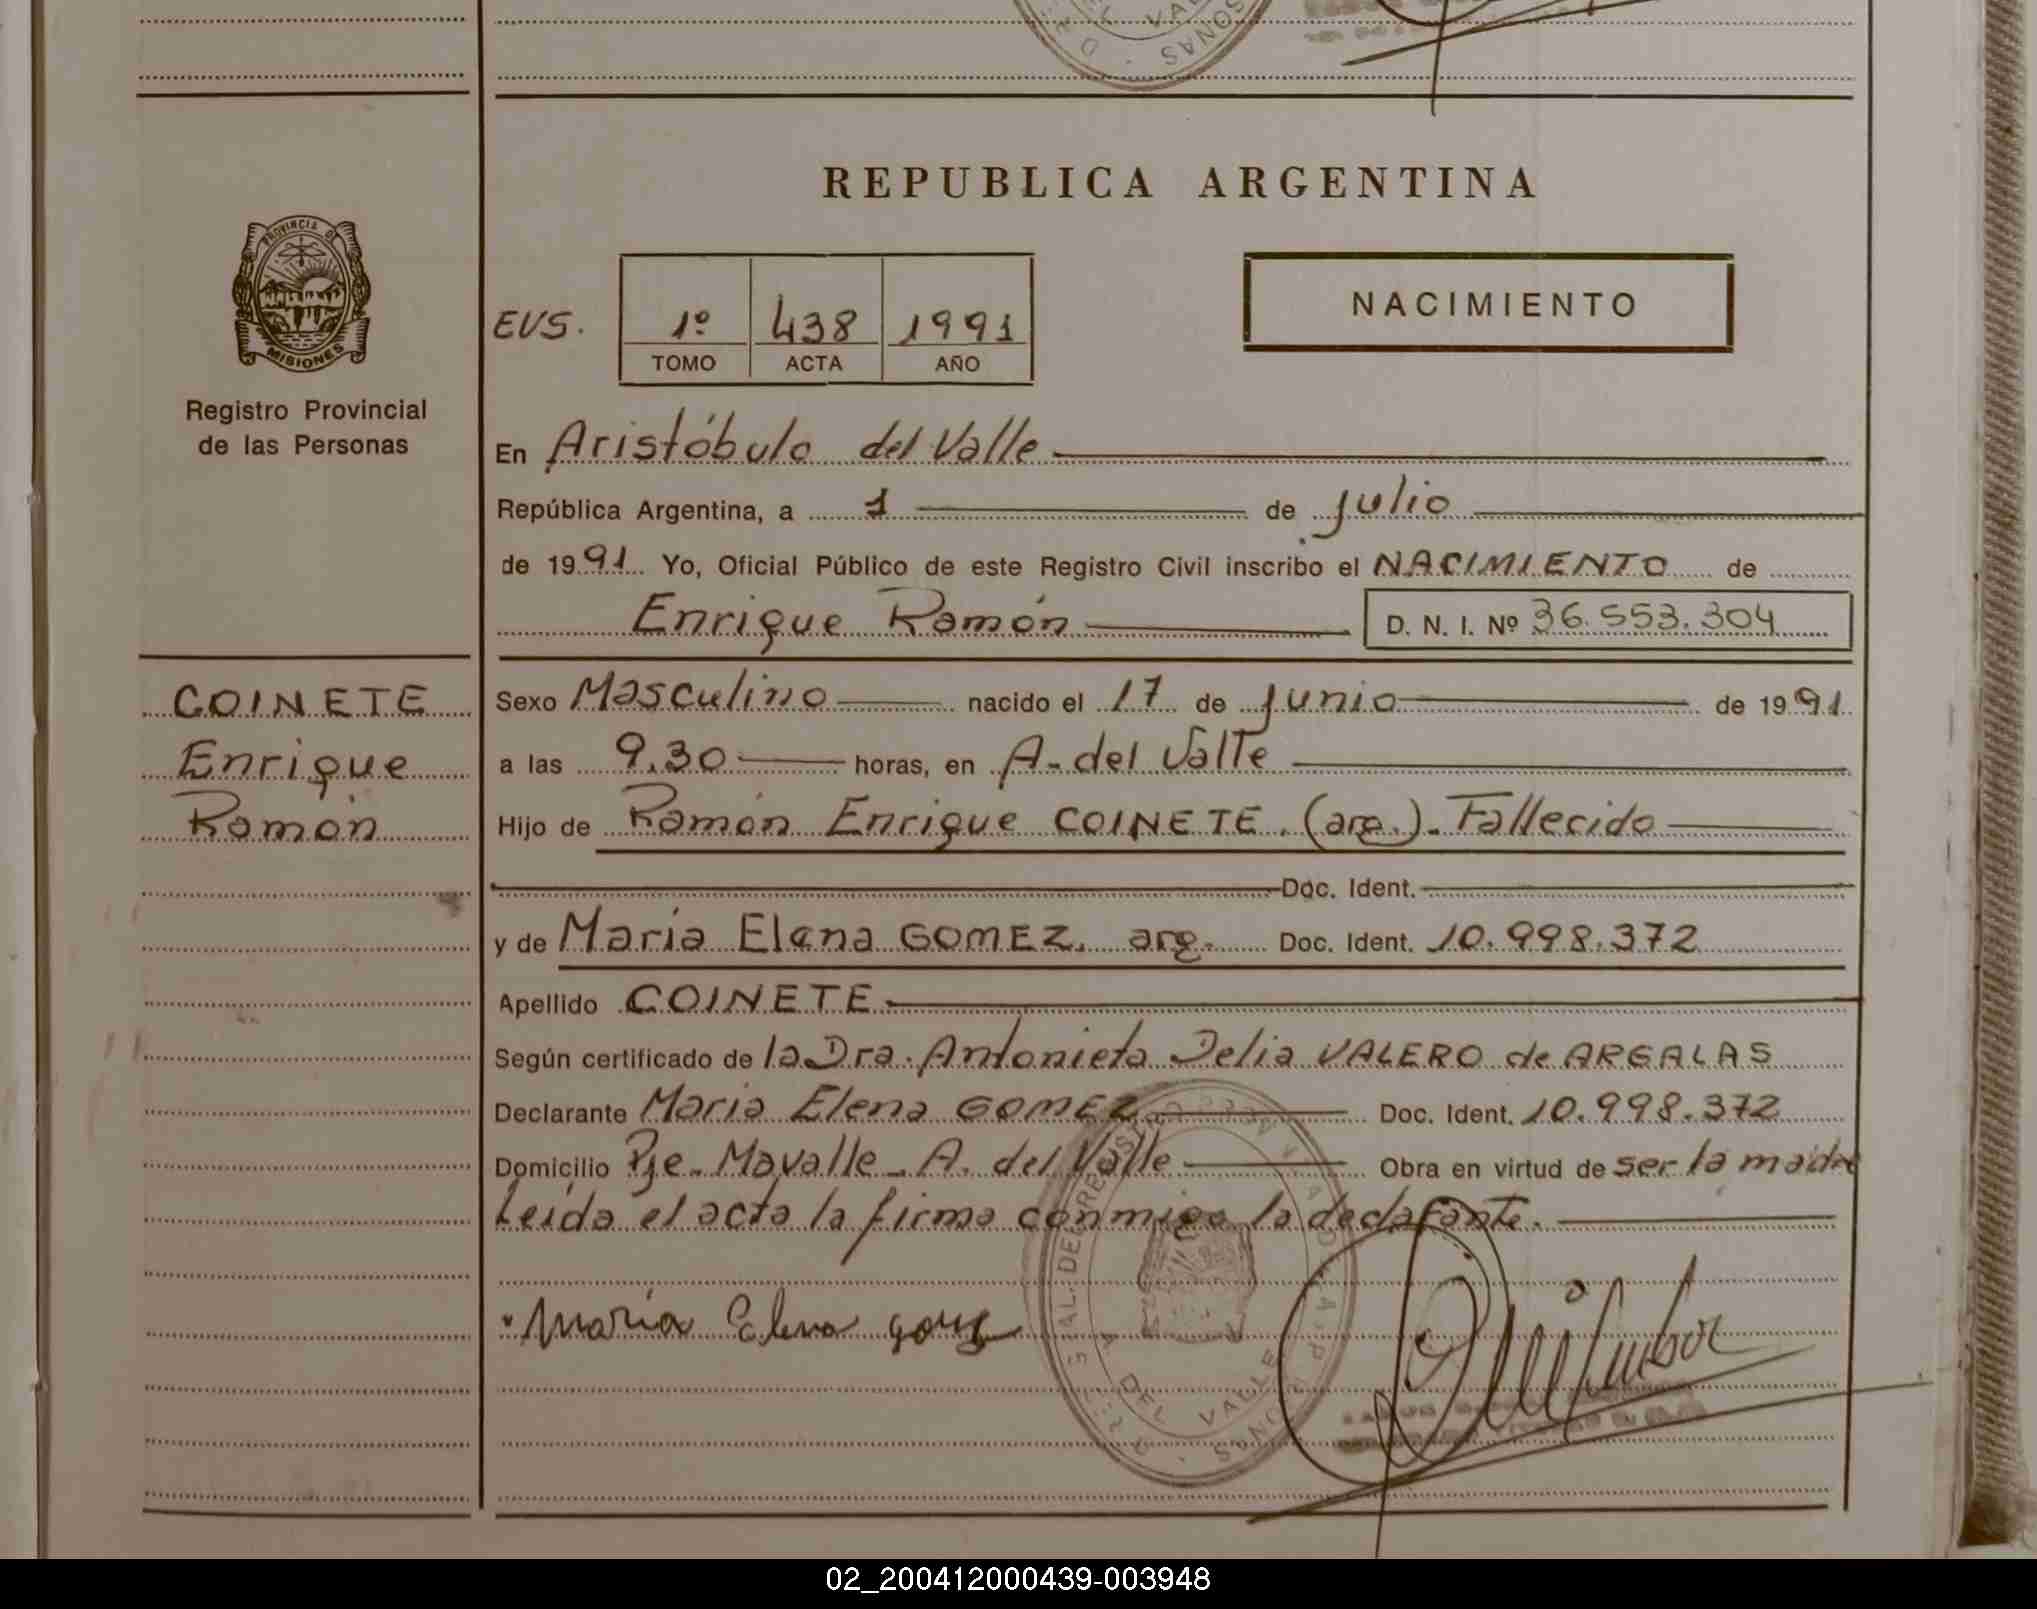 REPUBLICA ARGENTINA
PROVINCIA DE
MISIONES
Registro Provincial
de las Personas
EVS.
1º 438 1991
TOMO ACTA AÑO
NACIMIENTO
En Aristóbulo del Valle
República Argentina, a 1 de Julio
de 1991 Yo, Oficial Público de este Registro Civil inscribo el NACIMIENTO de
Enrique Ramón D. N. I. Nº 36.553.304
COINETE
Enrique
Ramón
Sexo Masculino nacido el 17 de Junio de 1991
a las 9.30 horas, en A. del Valle
Hijo de Ramón Enrique COINETE. (arg.). Fallecido
Doc. Ident.
y de María Elena GOMEZ. arg. Doc. Ident. 10.998.372
Apellido COINETE
Según certificado de la Dra. Antonieta Delia VALERO de ARGALAS
Declarante María Elena GOMEZ Doc. Ident. 10.998.372
Domicilio Pje. Mavalle. A. del Valle Obra en virtud de ser la madre
Leída el acta la firma conmigo la declarante.
María Elena
A DEL VALLE
02_200412000439-003948